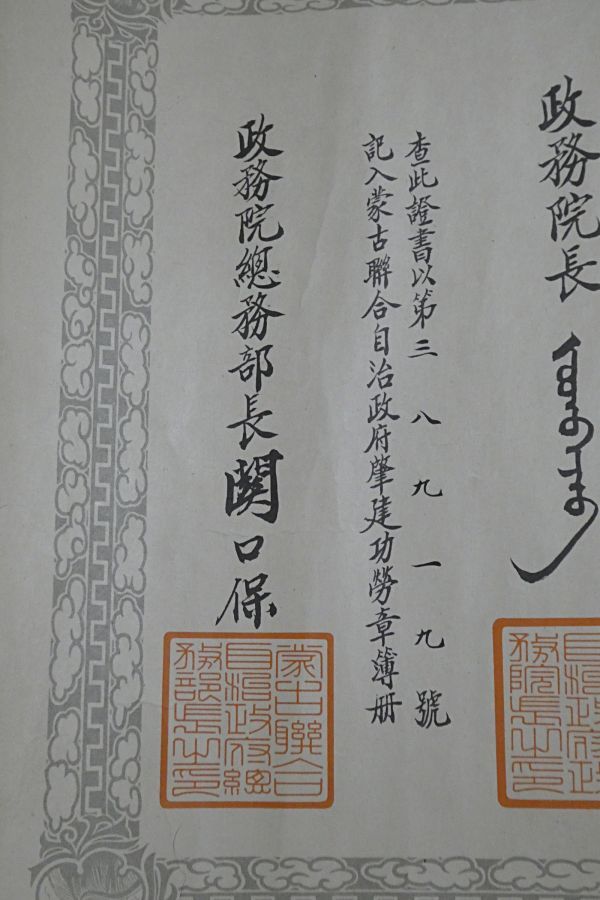 政務院長
查此證書以第三八九一九號
記入蒙古聯合自治政府肇建功勞章簿册
政務院總務部長關口保
蒙古聯合
自治政府總
務部長之印